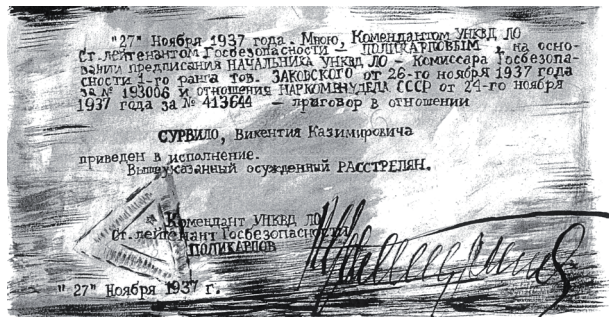 "27" Ноября 1937 года. Мною, Комендантом УНКВД ЛО
Ст.лейтенантом Госбезопасности – ПОЛИКАРПОВЫМ, на осно-
вании предписания НАЧАЛЬНИКА УНКВД ЛО – Комиссара Госбезопа-
сности 1-го ранга тов. ЗАКОВСКОГО от 26-го ноября 1937 года
за № 193006 и отношения НАРКОМВНУДЕЛА СССР от 24-го ноября
1937 года за № 413644 – приговор в отношении
СУРВИЛО, Викентия Казимировича
приведен в исполнение.
Вышеуказанный осужденный РАССТРЕЛЯН.
Комендант УНКВД ЛО
Ст.лейтенант Госбезопасности
ПОЛИКАРПОВ
"27" Ноября 1937 г.